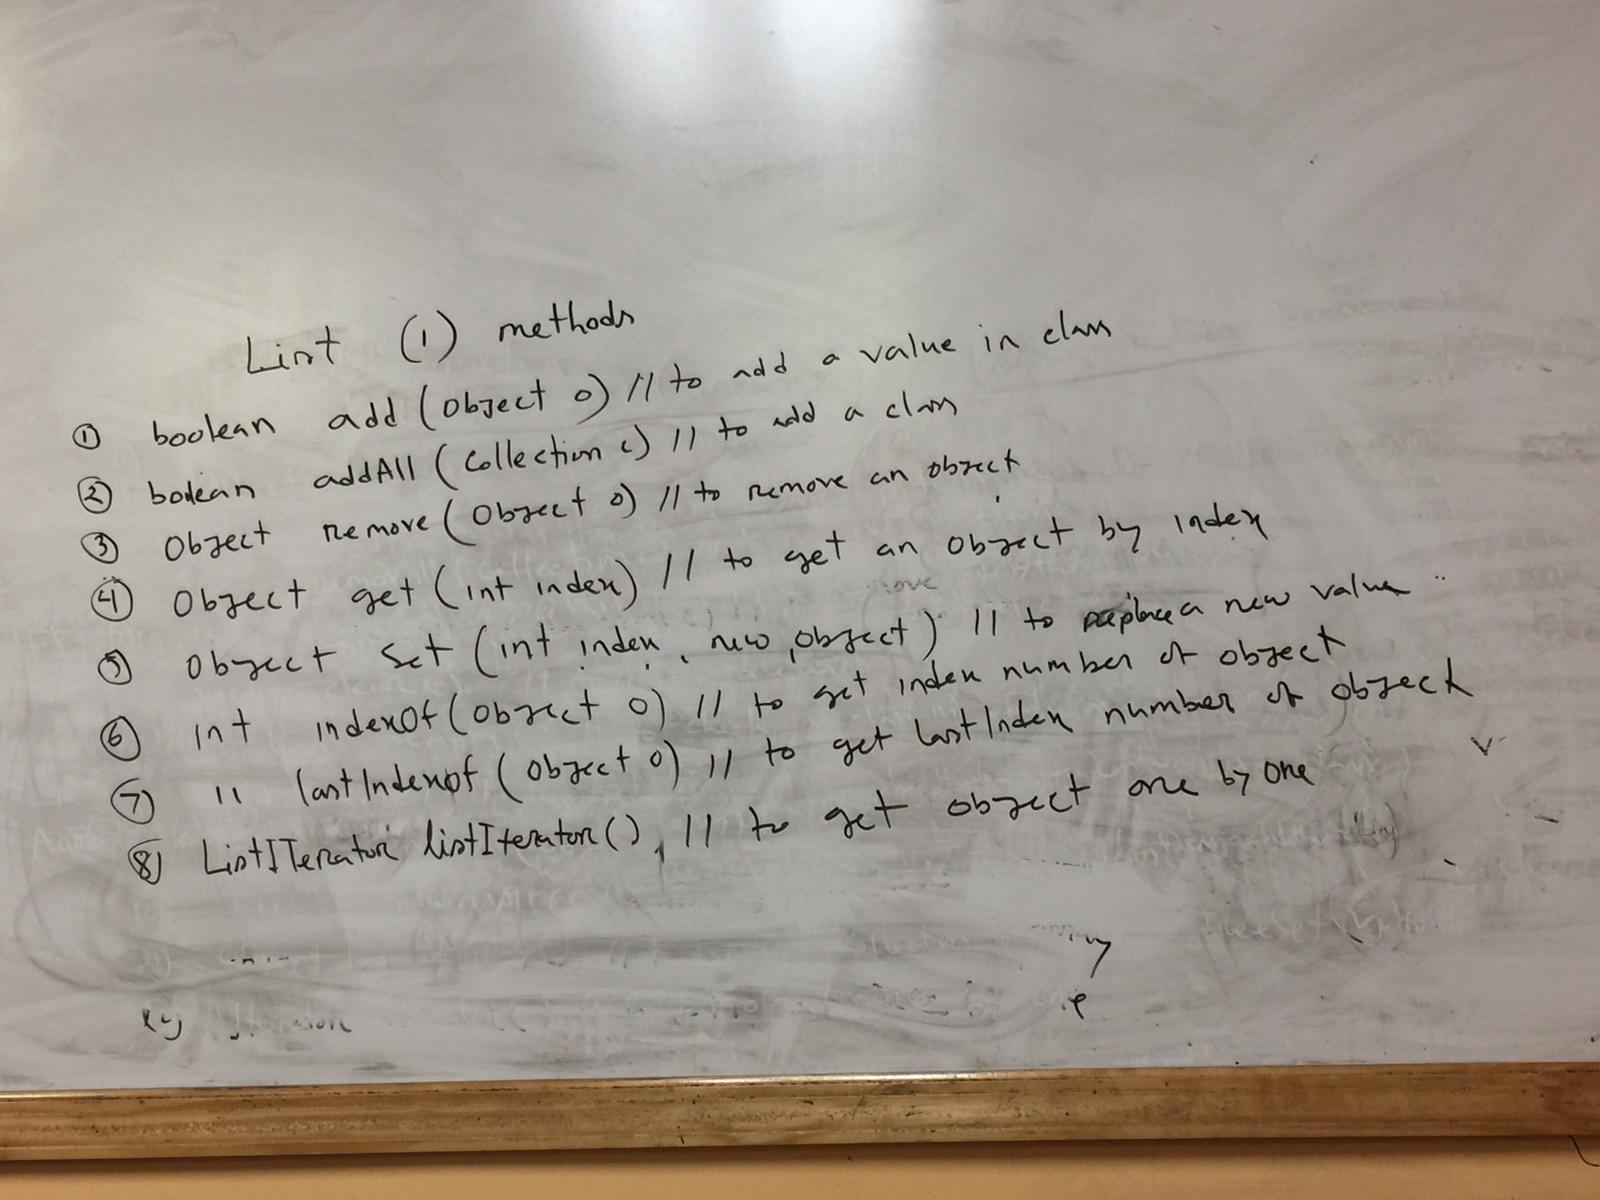 List (1) methods
① boolean add (Object o) // to add a value in class
② bolean addAll (Collection c) // to add a class
③ Object remove (Object o) // to remove an object
④ Object get (int index) // to get an object by index
⑤ Object set (int index, new object) // to replace a new value
⑥ int indexOf (Object o) // to get index number of object
⑦ " lastIndexof (Object o) // to get lastIndex number of object
⑧ ListITerator listIterator() // to get object one by one